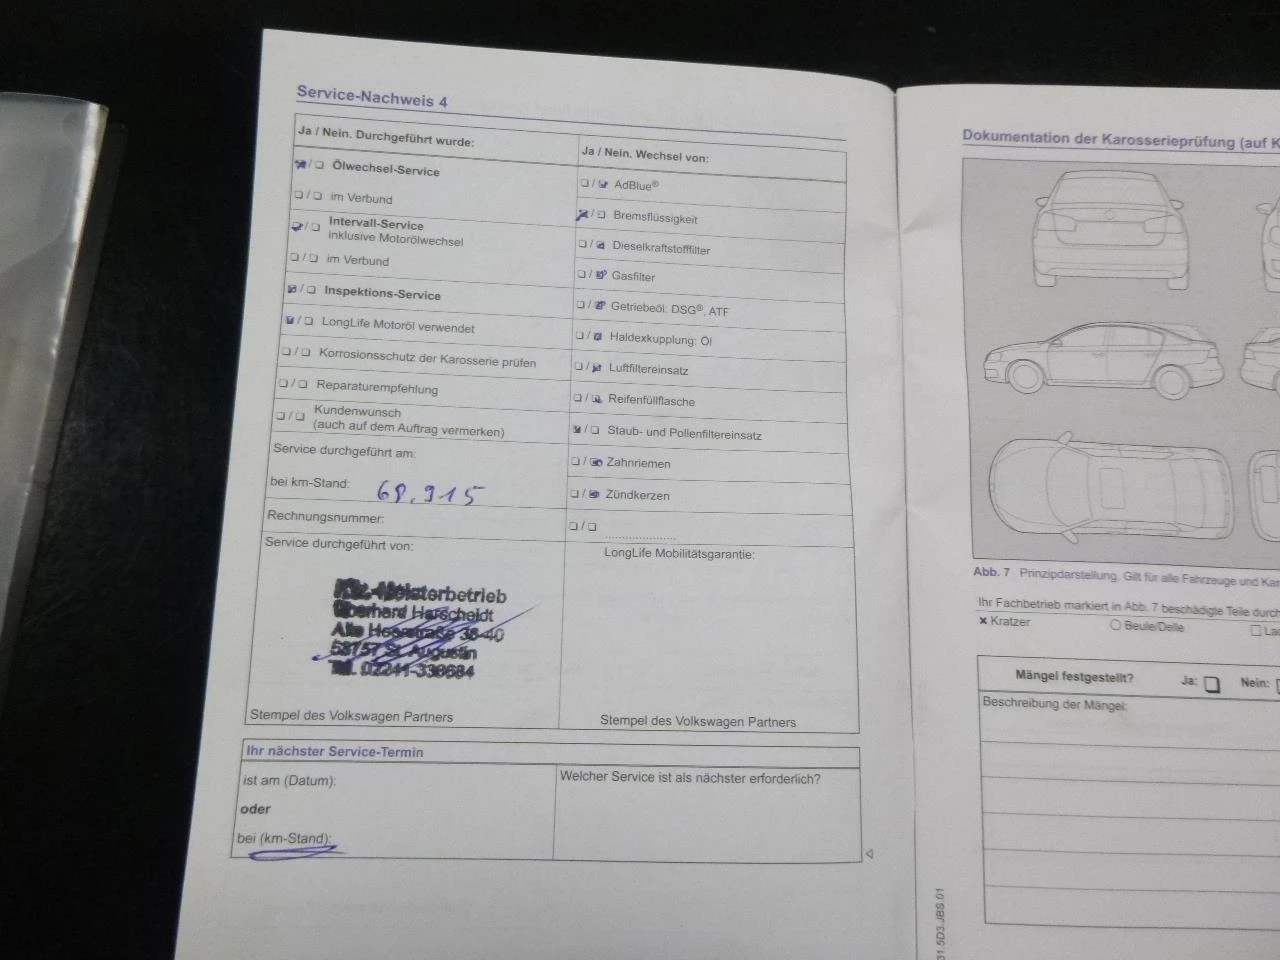 Service-Nachweis 4
Ja / Nein. Durchgeführt wurde:
Ölwechsel-Service
im Verbund
Intervall-Service
inklusive Motorölwechsel
im Verbund
Inspektions-Service
LongLife Motoröl verwendet
Korrosionsschutz der Karosserie prüfen
Reparaturempfehlung
Kundenwunsch
(auch auf dem Auftrag vermerken)
Service durchgeführt am:
bei km-Stand: 68.915
Rechnungsnummer:
Service durchgeführt von:
Kfz.-Meisterbetrieb
Eberhard Harscheidt
Alte Heerstraße 38-40
53757 St. Augustin
Tel. 02241-338684
Stempel des Volkswagen Partners
Ja / Nein. Wechsel von:
AdBlue®
Bremsflüssigkeit
Dieselkraftstofffilter
Gasfilter
Getriebeöl: DSG®, ATF
Haldexkupplung: Öl
Luftfiltereinsatz
Reifenfüllflasche
Staub- und Pollenfiltereinsatz
Zahnriemen
Zündkerzen
LongLife Mobilitätsgarantie:
Stempel des Volkswagen Partners
Ihr nächster Service-Termin
ist am (Datum):
oder
bei (km-Stand):
Welcher Service ist als nächster erforderlich?
Dokumentation der Karosserieprüfung (auf K
Abb. 7 Prinzipdarstellung. Gilt für alle Fahrzeuge und Kar
Ihr Fachbetrieb markiert in Abb. 7 beschädigte Teile durch
Kratzer
Beule/Delle
Lac
Mängel festgestellt? Ja: Nein:
Beschreibung der Mängel:
31.5D3.JBS.01